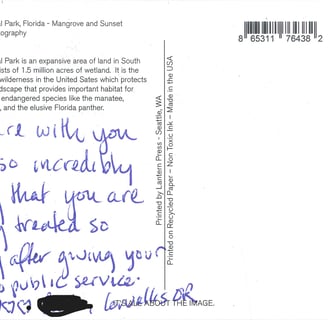 l Park, Florida - Mangrove and Sunset
ography
l Park is an expansive area of land in South
ists of 1.5 million acres of wetland. It is the
wilderness in the United Sates which protects
dscape that provides important habitat for
endangered species like the manatee,
, and the elusive Florida panther.
8 65311 76438 2
Printed by Lantern Press - Seattle, WA
Printed on Recycled Paper – Non Toxic Ink – Made in the USA
are with you
so incredibly
that you are
treated so
after giving your
public service.
Corvallis OR
ABOUT THE IMAGE.